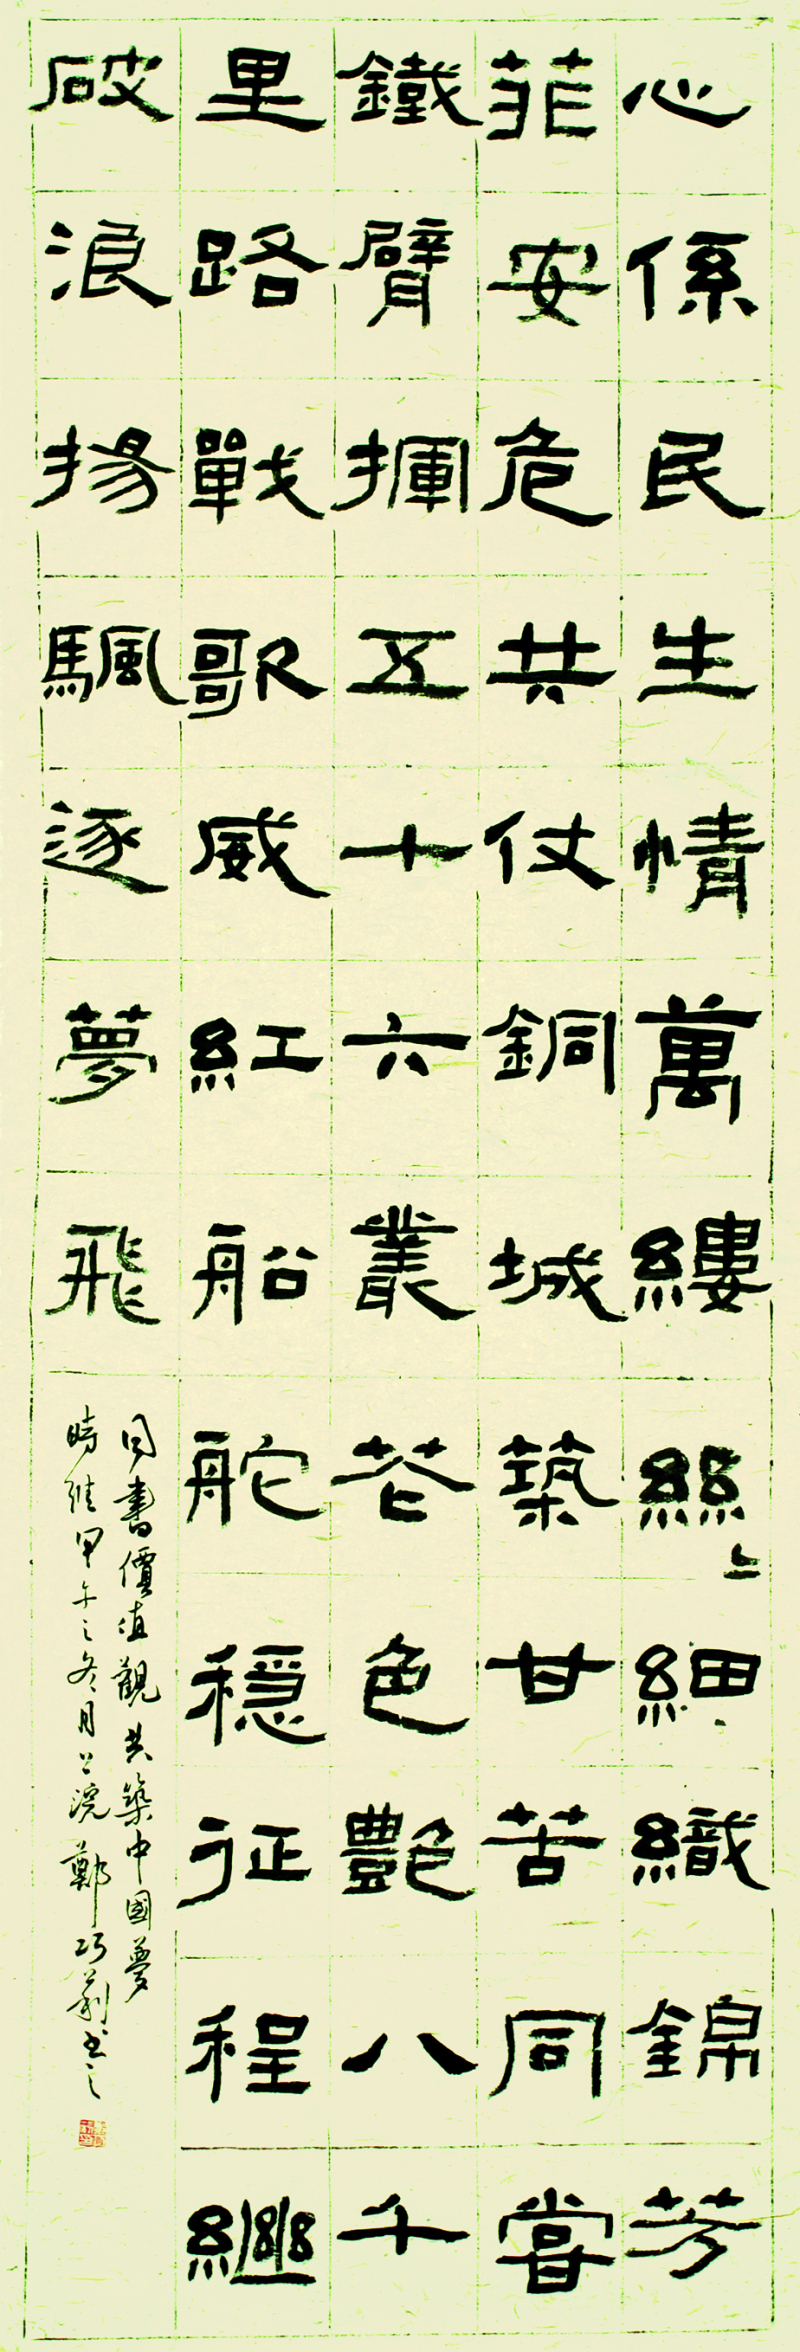 心係民生情萬縷絲絲細織錦芳
菲安危共仗銅城築甘苦同嘗
鐵臂揮五十六叢花色艷八千
里路戰歌威紅船舵穩征程繼
破浪揚颿逐夢飛
同書價值觀共築中國夢
時維甲午之冬月 鄭巧莉書之